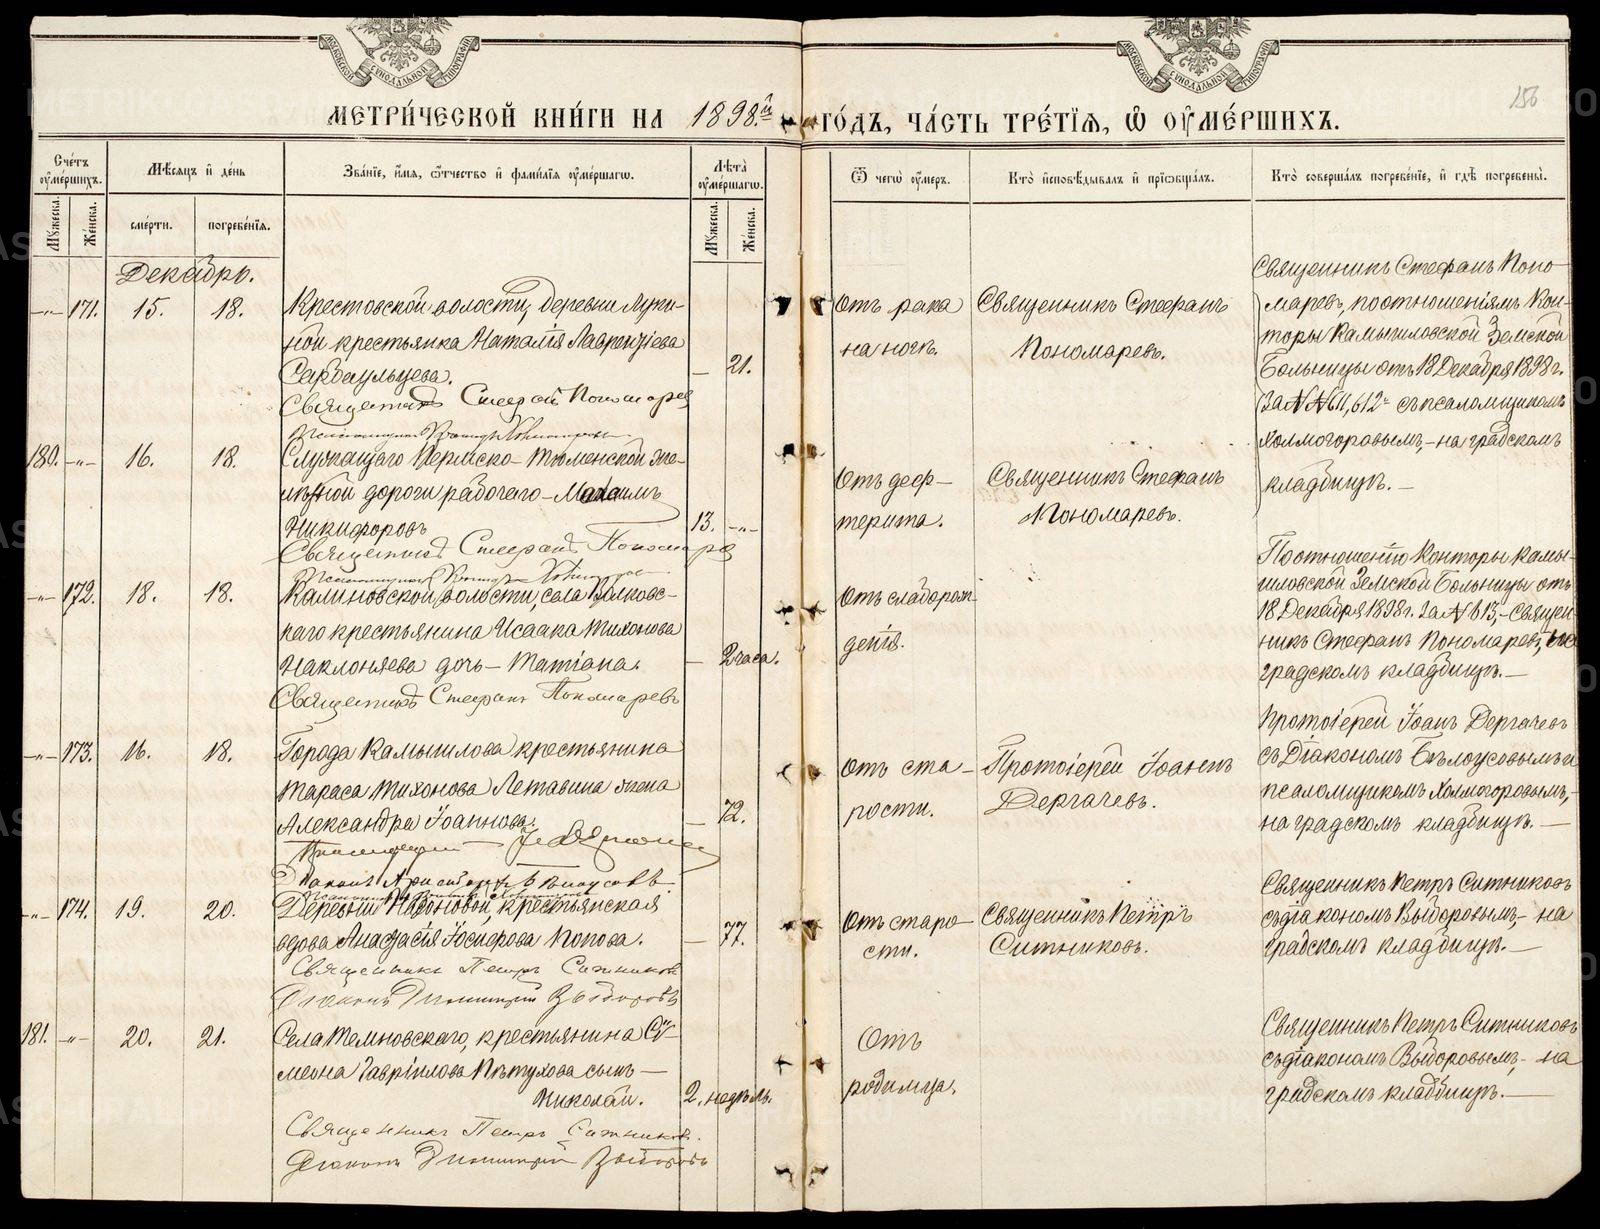 МОСКОВСКОЙ СѴНОДАЛЬНОЙ ТИПОГРАФІИ
МОСКОВСКОЙ СѴНОДАЛЬНОЙ ТИПОГРАФІИ
156
МЕТРИ́ЧЕСКОЙ КНИ́ГИ НА 1898й ГО́ДЪ, ЧА́СТЬ ТРЕ́ТІѦ, Ѡ ОУМЕ́РШИХЪ.
Сче́тъ оумершихъ.
Мужеска.
Же́нска.
Мѣсяцъ и день
сме́рти.
погребе́нїя.
Зва́нїе, и́мя, ѻтчество и фами́лїя оумершагѡ.
Лѣта̀ оумершагѡ.
Мужеска.
Же́нска.
Ѿ чегѡ̀ оумеръ.
Кто̀ исповѣдывалъ и прїѡбща́лъ.
Кто̀ соверша́лъ погребе́нїе, и гдѣ̀ погребены̀.
Декабрь.
-"- 171. 15. 18.
Крестовской волости, деревни Луки-
ной крестьянка Наталія Лаврентіева
Сарбаульцева.
— 21.
Священникъ Стефанъ Пономаревъ
Отъ рака
на ногѣ.
Священникъ Стефанъ
Пономаревъ.
Священникъ Стефанъ Поно-
маревъ, по отношеніямъ Кон-
торы Камышловской Земской
Больницы отъ 18 Декабря 1898 г.
за №№ 611, 612 съ псаломщикомъ
Холмогоровымъ, - на градскомъ
кладбищѣ. —
180. -"- 16. 18.
Служащаго Пермско-Тюменской же-
лѣзной дороги рабочаго - Максимъ
Никифоровъ
13. -"-
Священникъ Стефанъ Пономарев
Отъ диф-
терита.
Священникъ Стефанъ
Пономаревъ.
-"- 172. 18. 18.
Калиновской волости, села Волковс-
каго крестьянина Исаака Тихонова
Наклоняева дочь - Татіана.
— 2 часа.
Священникъ Стефанъ Пономаревъ
Отъ слаборож-
денія.
По отношенію Конторы Камы-
шловской Земской Больницы отъ
18 Декабря 1898 г. за № 613, - Священ-
никъ Стефанъ Пономаревъ, на
градскомъ кладбищѣ. —
-"- 173. 16. 18.
Города Камышлова крестьянина
Тараса Тихонова Летавина жена
Александра Іоаннова.
— 72.
Отъ ста-
рости.
Протоіерей Іоаннъ
Дергачевъ.
Протоіерей Іоаннъ Дергачевъ
съ Діакономъ Бѣлоусовымъ и
псаломщикомъ Холмогоровымъ, -
на градскомъ кладбищѣ. —
-"- 174. 19. 20.
крестьянская
вдова Анастасія Іосифова Попова.
— 77.
Священникъ Петръ Ситниковъ
Діаконъ Димитрій Выборовъ
Отъ старо-
сти.
Священникъ Петръ
Ситниковъ.
Священникъ Петръ Ситниковъ
съ діакономъ Выборовымъ, - на
градскомъ кладбищѣ. —
181. -"- 20. 21.
Села Темновскаго, крестьянина Си-
меона Гавріилова Пѣтухова сынъ —
Николай.
2. недѣль.
Священникъ Петръ Ситниковъ.
Діаконъ Димитрій Выборовъ
Отъ
родимца.
Священникъ Петръ Ситниковъ
съ діакономъ Выборовымъ, - на
градскомъ кладбищѣ. —